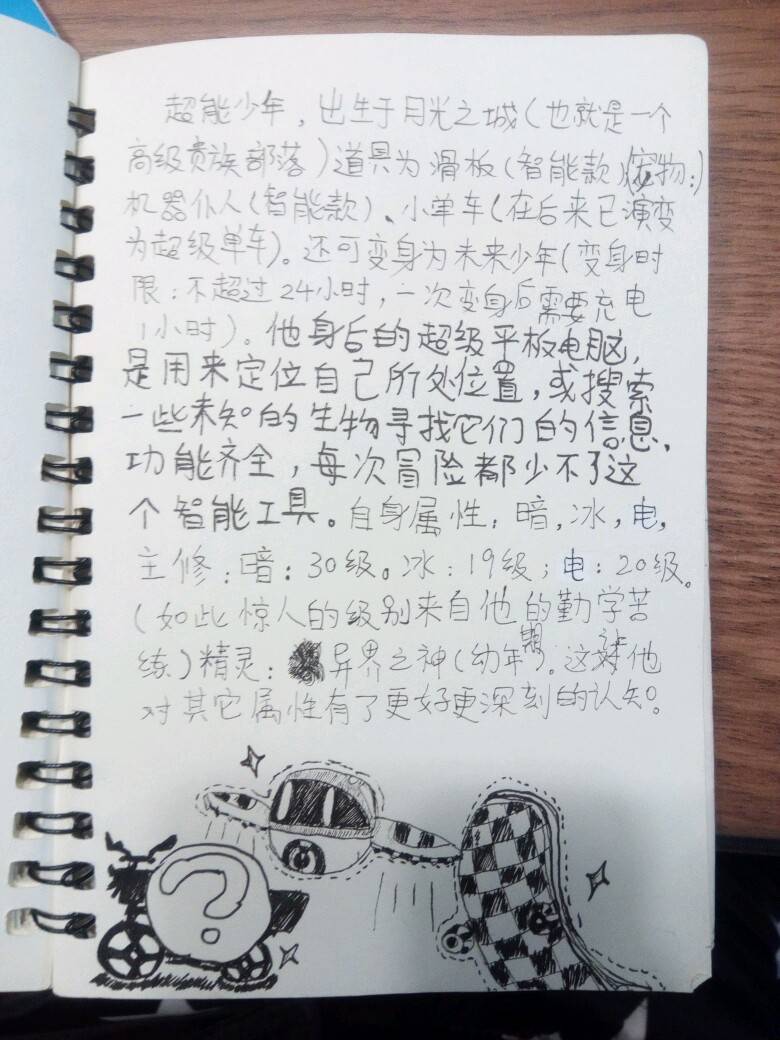 超能少年，出生于月光之城(也就是一个
高级贵族部落)道具为滑板(智能款)(宠物:)
机器仆人(智能款)、小单车(在后来已演变
为超级单车)。还可变身为未来少年(变身时
限:不超过24小时，一次变身后需要充电
1小时)。他身后的超级平板电脑，
是用来定位自己所处位置，或搜索
一些未知的生物寻找它们的信息，
功能齐全，每次冒险都少不了这
个智能工具。自身属性，暗，冰，电，
主修:暗:30级。冰:19级;电:20级。
(如此惊人的级别来自他的勤学苦
练)精灵:异界之神(幼年期)。这让他
对其它属性有了更好更深刻的认知。
?